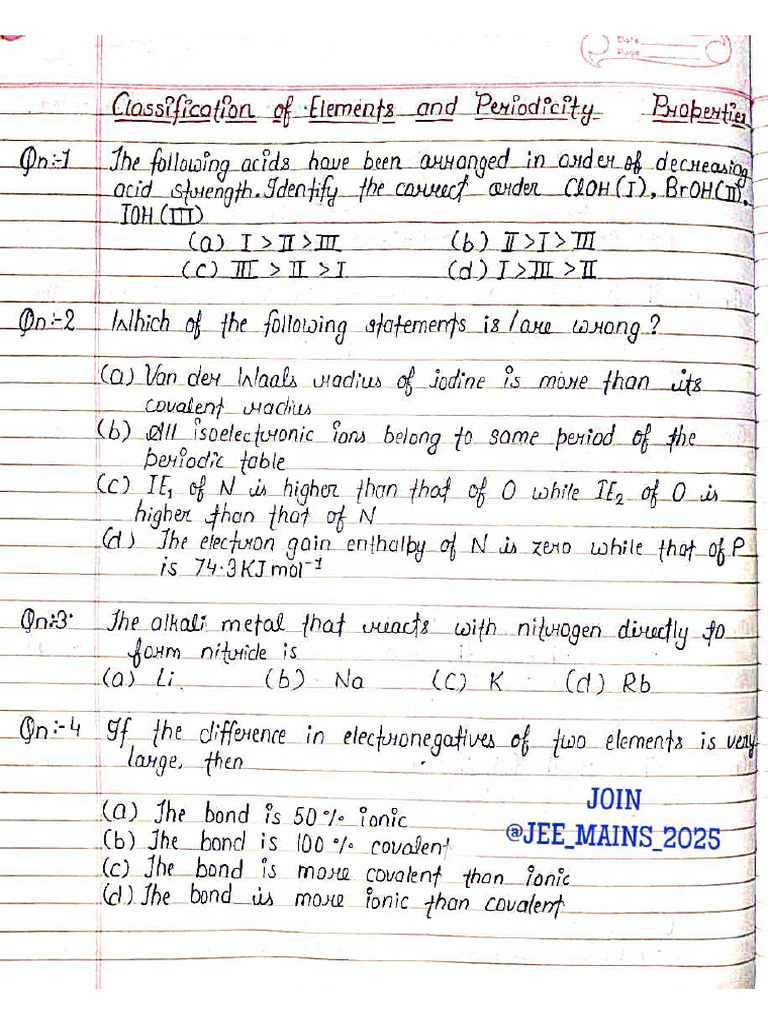 Date
Page
Classification of Elements and Periodicity Properties
Qn:-1 The following acids have been arranged in order of decreasing
acid strength. Identify the correct order ClOH(I), BrOH(II),
IOH(III)
(a) I > II > III (b) II > I > III
(c) III > II > I (d) I > III > II
Qn:-2 Which of the following statements is/are wrong?
(a) Van der Waals radius of iodine is more than its
covalent radius
(b) All isoelectronic ions belong to same period of the
periodic table
(c) IE₁ of N is higher than that of O while IE₂ of O is
higher than that of N
(d) The electron gain enthalby of N is zero while that of P
is 74.3 KJ mol⁻¹
Qn:-3 The alkali metal that reacts with nitrogen directly to
form nitride is
(a) Li (b) Na (c) K (d) Rb
Qn:-4 If the difference in electronegatives of two elements is very
large, then
(a) The bond is 50% ionic
(b) The bond is 100% covalent
(c) The bond is more covalent than ionic
(d) The bond is more ionic than covalent
JOIN
@JEE_MAINS_2025